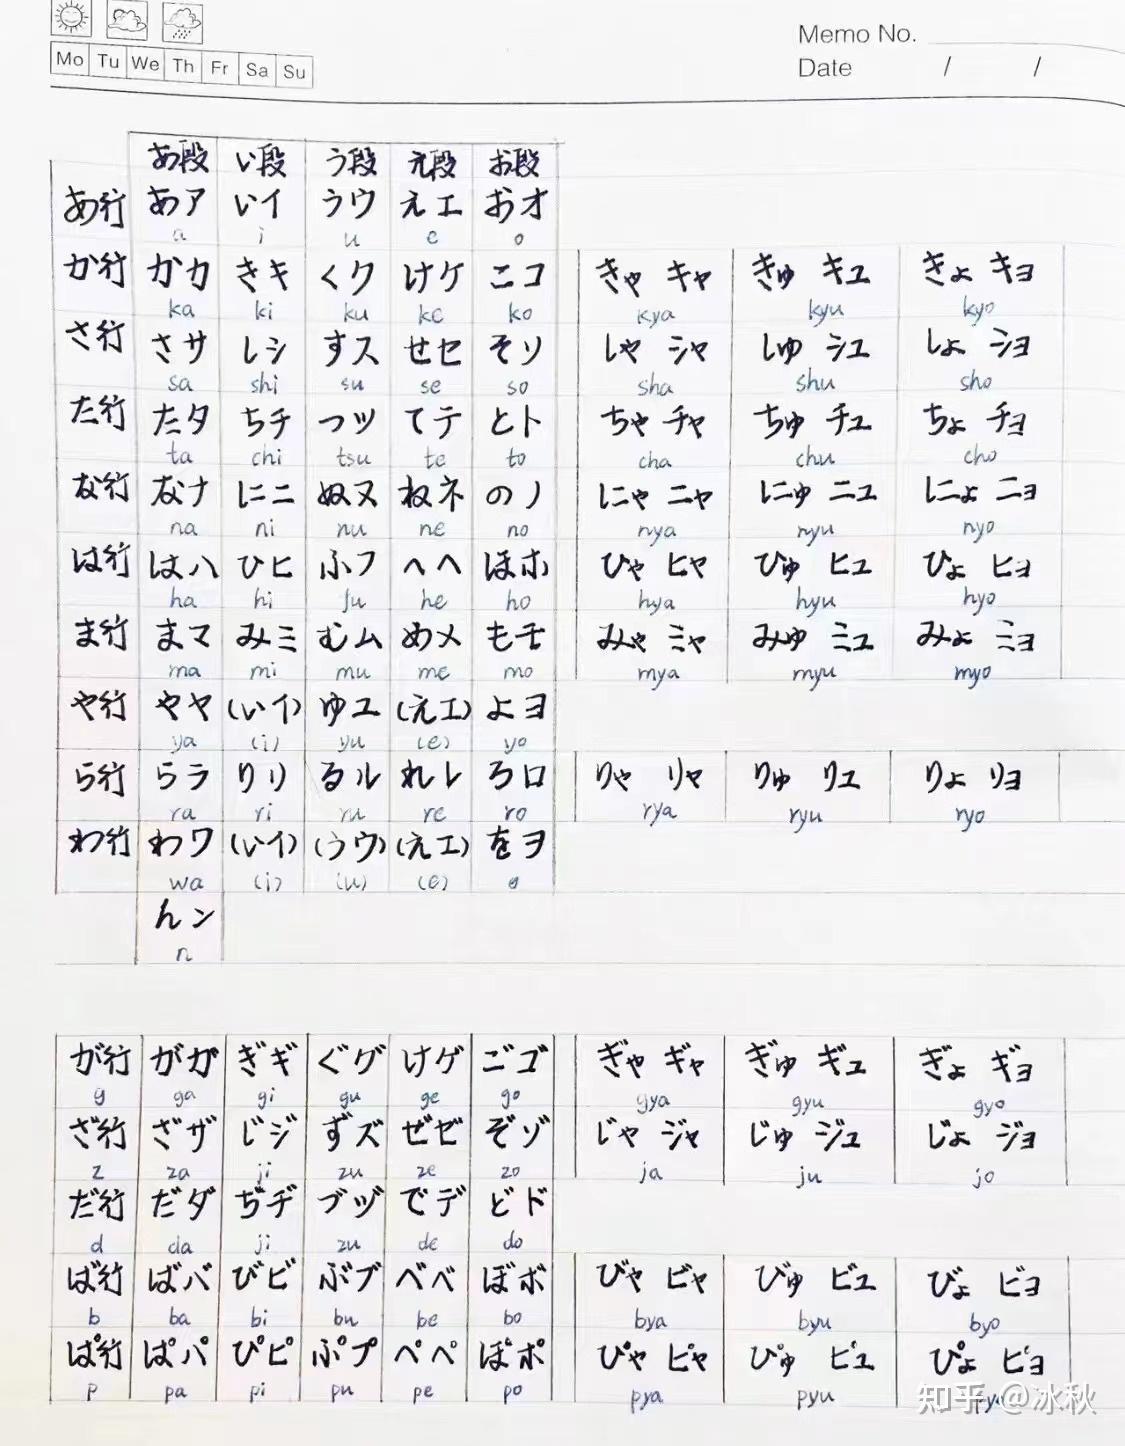 Memo No.
Mo Tu We Th Fr Sa Su
Date / /
あ段 い段 う段 え段 お段
あ行 あア いイ うウ えエ おオ
a i u e o
か行 かカ きキ くク けケ こコ きゃ キャ きゅ キュ きょ キョ
ka ki ku ke ko kya kyu kyo
さ行 さサ しシ すス せセ そソ しゃ シャ しゅ シュ しょ ショ
sa shi su se so sha shu sho
た行 たタ ちチ つツ てテ とト ちゃ チャ ちゅ チュ ちょ チョ
ta chi tsu te to cha chu cho
な行 なナ にニ ぬヌ ねネ のノ にゃ ニャ にゅ ニュ にょ ニョ
na ni nu ne no nya nyu nyo
は行 はハ ひヒ ふフ へヘ ほホ ひゃ ヒャ ひゅ ヒュ ひょ ヒョ
ha hi fu he ho hya hyu hyo
ま行 まマ みミ むム めメ もモ みゃ ミャ みゅ ミュ みょ ミョ
ma mi mu me mo mya myu myo
や行 やヤ (いイ) ゆユ (えエ) よヨ
ya (i) yu (e) yo
ら行 らラ りリ るル れレ ろロ りゃ リャ りゅ リュ りょ リョ
ra ri ru re ro rya ryu ryo
わ行 わワ (いイ) (うウ) (えエ) をヲ
wa (i) (u) (e) o
んン
n
が行 がガ ぎギ ぐグ けゲ ごゴ ぎゃ ギャ ぎゅ ギュ ぎょ ギョ
g ga gi gu ge go gya gyu gyo
ざ行 ざザ じジ ずズ ぜゼ ぞゾ じゃ ジャ じゅ ジュ じょ ジョ
z za ji zu ze zo ja ju jo
だ行 だダ ぢヂ づヅ でデ どド
d da ji zu de do
ば行 ばバ びビ ぶブ べベ ぼボ びゃ ビャ びゅ ビュ びょ ビョ
b ba bi bu be bo bya byu byo
ぱ行 ぱパ ぴピ ぷプ ぺペ ぽポ ぴゃ ピャ ぴゅ ピュ ぴょ ピョ
p pa pi pu pe po pya pyu
知乎 @冰秋